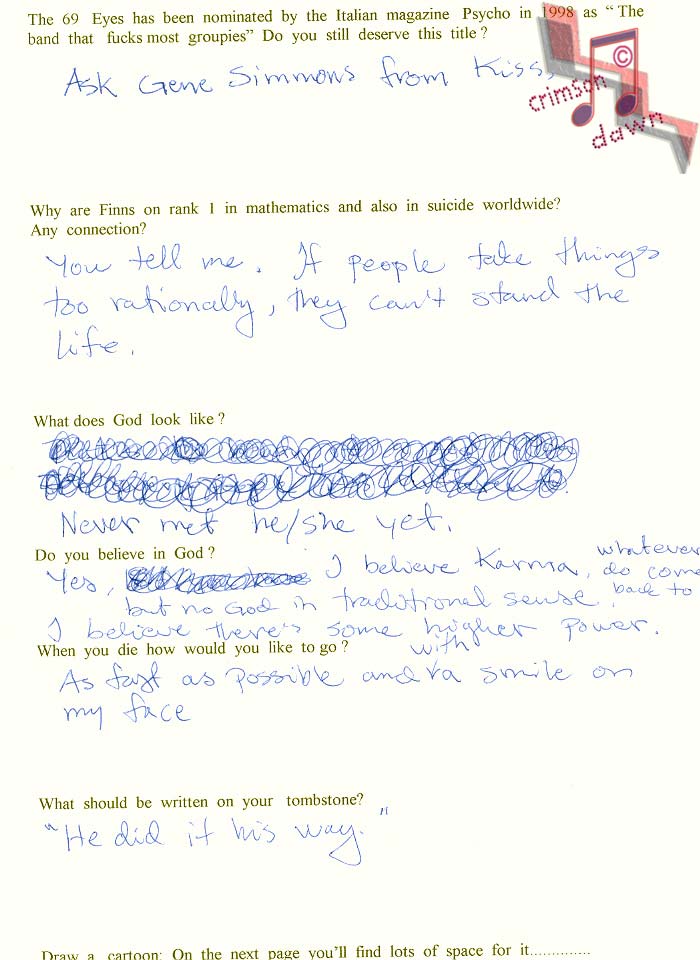 The 69 Eyes has been nominated by the Italian magazine Psycho in 1998 as “ The
band that fucks most groupies” Do you still deserve this title ?
Ask Gene Simmons from Kiss.
©
crimson
dawn
Why are Finns on rank 1 in mathematics and also in suicide worldwide?
Any connection?
You tell me. If people take things
too rationally, they can't stand the
life.
What does God look like ?
Never met he/she yet.
Do you believe in God ?
Yes, I believe Karma, whatever
do come
but no God in traditional sense. back to
I believe there's some higher power.
When you die how would you like to go ?
with
As fast as possible and a smile on
my face
What should be written on your tombstone?
"He did it his way."
Draw a cartoon: On the next page you’ll find lots of space for it..............